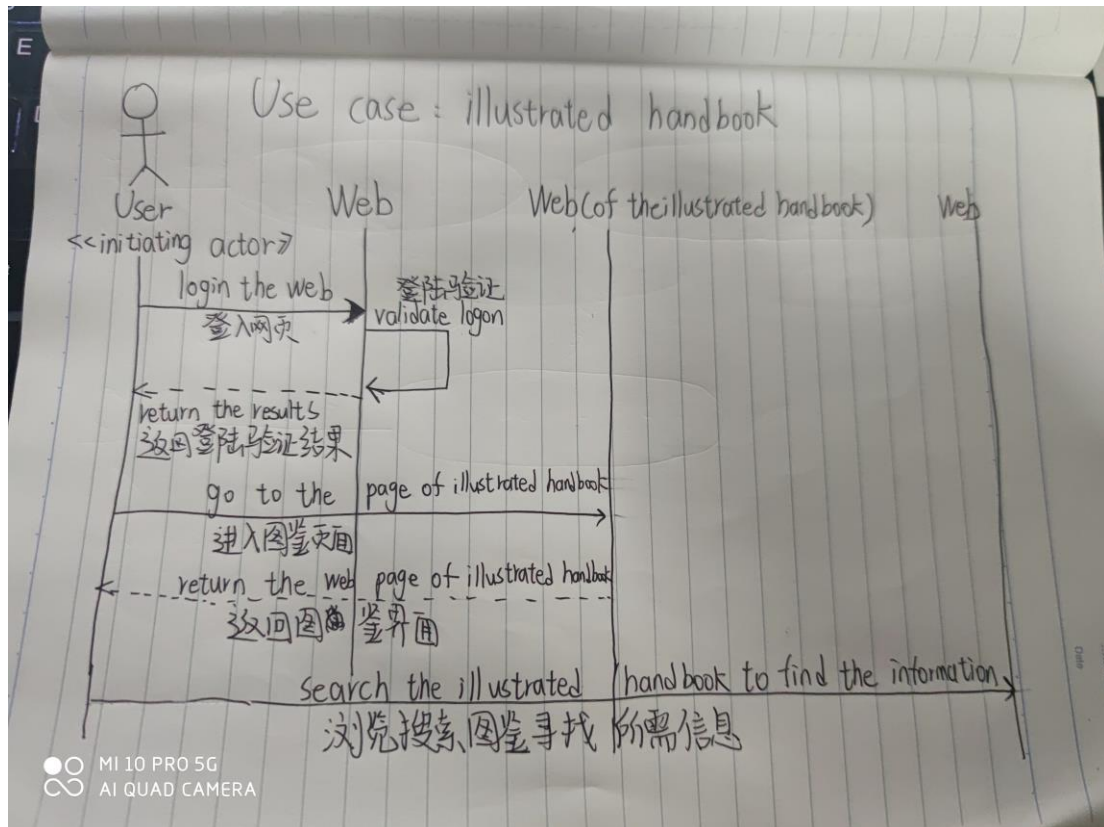 E
Use case: illustrated handbook
User
Web
Web(of the illustrated handbook)
Web
<<initiating actor>>
login the web
登入网页
登陆验证
validate logon
return the results
返回登陆验证结果
go to the page of illustrated handbook
进入图鉴页面
return the web page of illustrated handbook
返回图鉴界面
search the illustrated handbook to find the information
浏览搜索图鉴寻找所需信息
Date
MI 10 PRO 5G
AI QUAD CAMERA